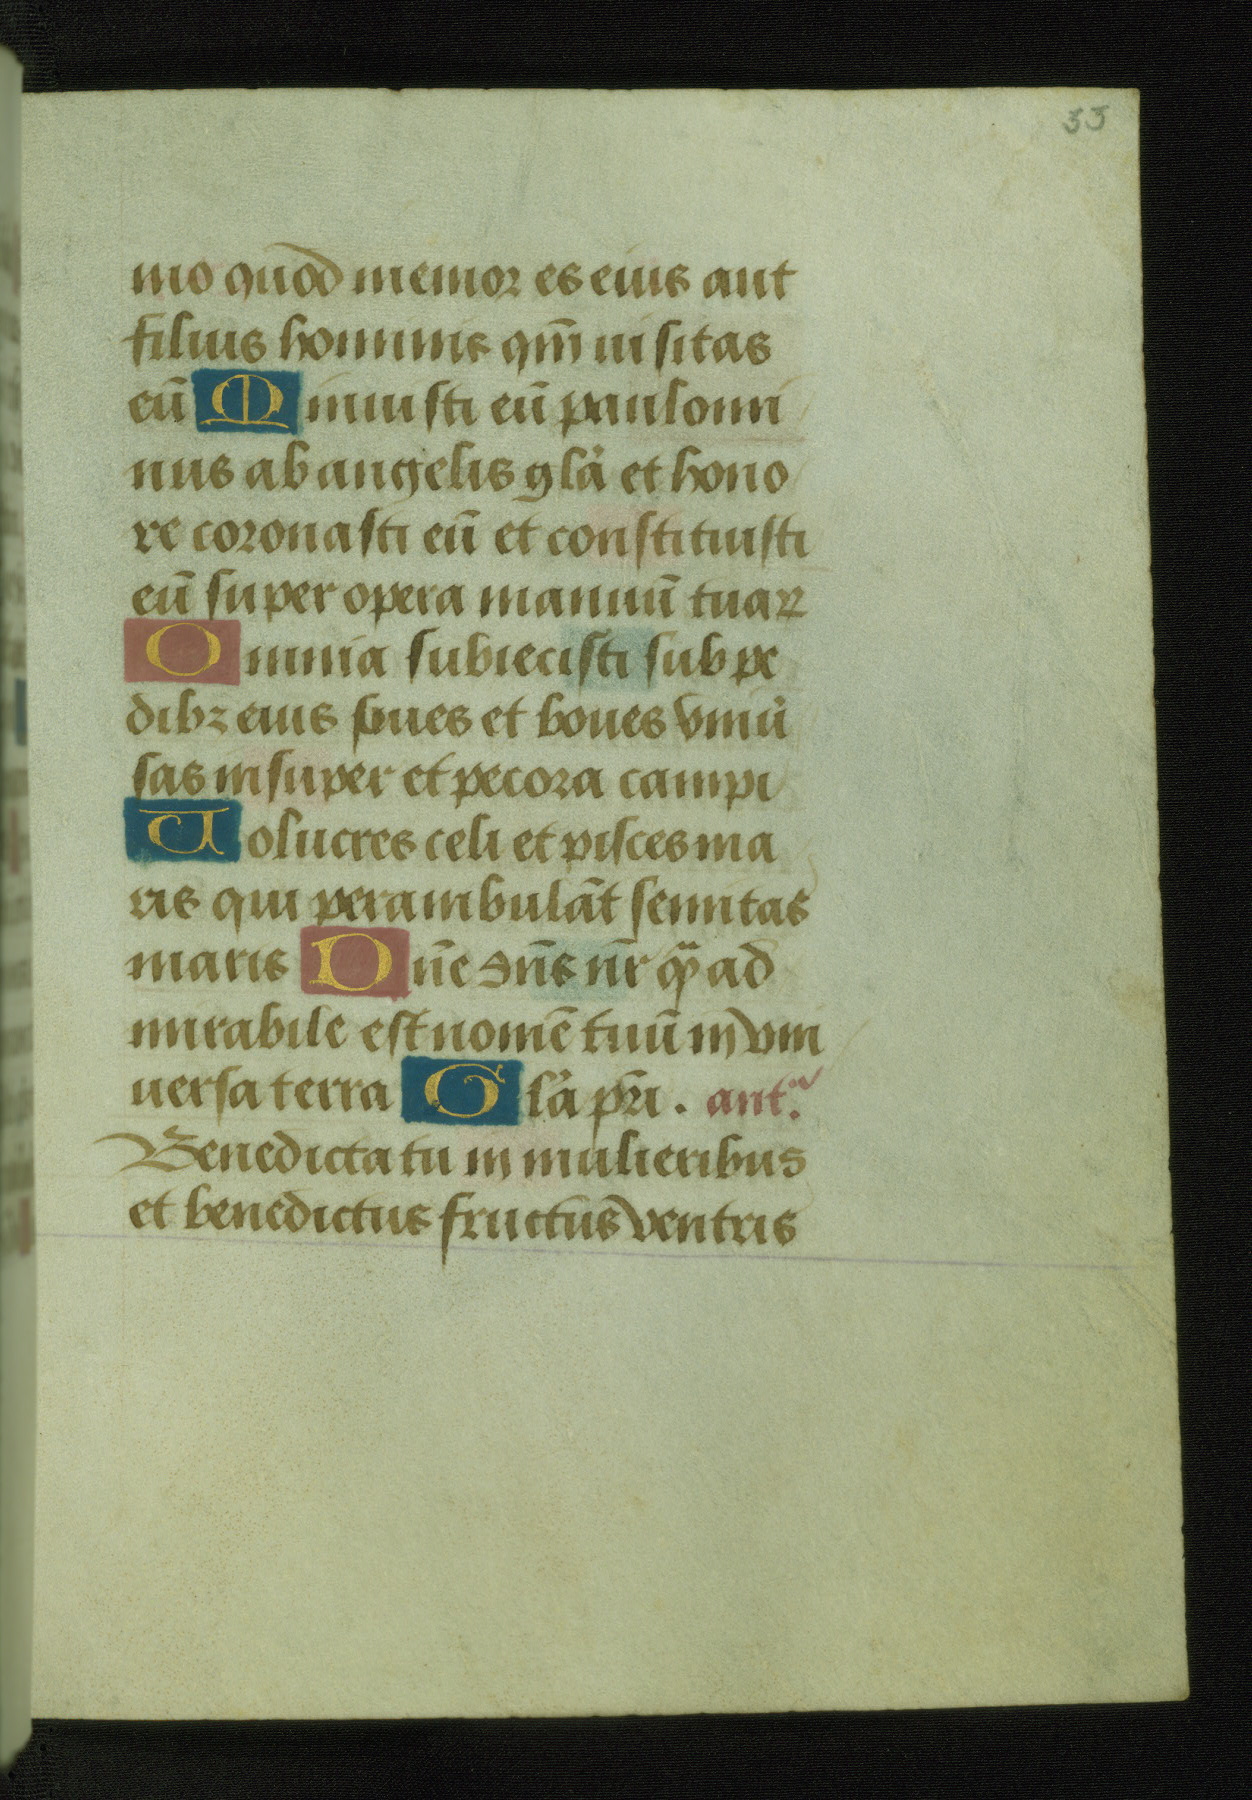 33
mo quod memor es eius aut
filius hominis qm̄ uisitas
eū Minuisti eū paulomi
nus ab angelis gla̓ et hono
re coronasti eū et constituisti
eū super opera manuū tuaꝝ
Omnia subiecisti sub pe
dibꝫ eius oues et boues vniu̓
sas insuper et pecora campi
Uolucres celi et pisces ma
ris qui perambulāt semitas
maris Dn̄e dn̄s nr̄ qͣ̄ ad
mirabile est nomē tuū in vni
uersa terra Gla̓ pr̄i . ant.ͣ
Benedicta tu in mulieribus
et benedictus fructus ventris